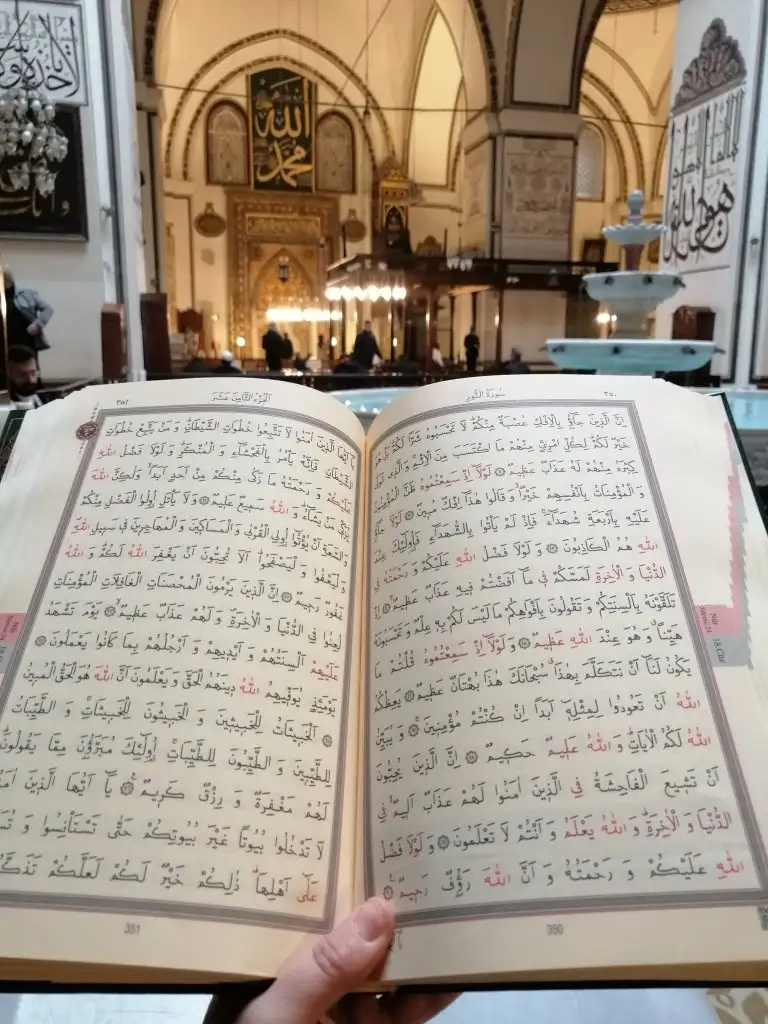 الله
محمد
سُورَةُ النُّورِ ٣٥٠
اِنَّ الَّذِينَ جَاؤُ بِالْاِفْكِ عُصْبَةٌ مِنْكُمْ لَا تَحْسَبُوهُ شَرًّا لَكُمْ بَلْ هُوَ
خَيْرٌ لَكُمْ لِكُلِّ امْرِئٍ مِنْهُمْ مَا اكْتَسَبَ مِنَ الْاِثْمِ وَ الَّذِي تَوَلّٰى
كِبْرَهُ مِنْهُمْ لَهُ عَذَابٌ عَظِيمٌ ۝ لَوْلَا اِذْ سَمِعْتُمُوهُ ظَنَّ الْمُؤْمِنُونَ
وَ الْمُؤْمِنَاتُ بِاَنْفُسِهِمْ خَيْرًا وَ قَالُوا هٰذَا اِفْكٌ مُبِينٌ ۝ لَوْلَا جَاؤُ
عَلَيْهِ بِاَرْبَعَةِ شُهَدَاءَ فَاِذْ لَمْ يَاْتُوا بِالشُّهَدَاءِ فَاُولٰئِكَ عِنْدَ
اللّٰهِ هُمُ الْكَاذِبُونَ ۝ وَ لَوْلَا فَضْلُ اللّٰهِ عَلَيْكُمْ وَ رَحْمَتُهُ فِي
الدُّنْيَا وَ الْاٰخِرَةِ لَمَسَّكُمْ فِي مَا اَفَضْتُمْ فِيهِ عَذَابٌ عَظِيمٌ ۝ اِذْ
تَلَقَّوْنَهُ بِاَلْسِنَتِكُمْ وَ تَقُولُونَ بِاَفْوَاهِكُمْ مَا لَيْسَ لَكُمْ بِهِ عِلْمٌ وَ تَحْسَبُونَهُ
هَيِّنًا وَ هُوَ عِنْدَ اللّٰهِ عَظِيمٌ ۝ وَ لَوْلَا اِذْ سَمِعْتُمُوهُ قُلْتُمْ مَا
يَكُونُ لَنَا اَنْ نَتَكَلَّمَ بِهٰذَا سُبْحَانَكَ هٰذَا بُهْتَانٌ عَظِيمٌ ۝ يَعِظُكُمُ
اللّٰهُ اَنْ تَعُودُوا لِمِثْلِهِ اَبَدًا اِنْ كُنْتُمْ مُؤْمِنِينَ ۝ وَ يُبَيِّنُ
اللّٰهُ لَكُمُ الْاٰيَاتِ وَ اللّٰهُ عَلِيمٌ حَكِيمٌ ۝ اِنَّ الَّذِينَ يُحِبُّونَ
اَنْ تَشِيعَ الْفَاحِشَةُ فِي الَّذِينَ اٰمَنُوا لَهُمْ عَذَابٌ اَلِيمٌ فِي
الدُّنْيَا وَ الْاٰخِرَةِ وَ اللّٰهُ يَعْلَمُ وَ اَنْتُمْ لَا تَعْلَمُونَ ۝ وَ لَوْلَا فَضْلُ
اللّٰهِ عَلَيْكُمْ وَ رَحْمَتُهُ وَ اَنَّ اللّٰهَ رَؤُفٌ رَحِيمٌ ۝
350
18.Cüz
اَلْجُزْءُ الثَّامِنَ عَشَرَ ٣٥١
يَا اَيُّهَا الَّذِينَ اٰمَنُوا لَا تَتَّبِعُوا خُطُوَاتِ الشَّيْطَانِ وَ مَنْ يَتَّبِعْ خُطُوَاتِ
الشَّيْطَانِ فَاِنَّهُ يَاْمُرُ بِالْفَحْشَاءِ وَ الْمُنْكَرِ وَ لَوْلَا فَضْلُ اللّٰهِ
عَلَيْكُمْ وَ رَحْمَتُهُ مَا زَكٰى مِنْكُمْ مِنْ اَحَدٍ اَبَدًا وَ لٰكِنَّ اللّٰهَ
يُزَكِّي مَنْ يَشَاءُ وَ اللّٰهُ سَمِيعٌ عَلِيمٌ ۝ وَ لَا يَاْتَلِ اُولُوا الْفَضْلِ مِنْكُمْ
وَ السَّعَةِ اَنْ يُؤْتُوا اُولِي الْقُرْبٰى وَ الْمَسَاكِينَ وَ الْمُهَاجِرِينَ فِي سَبِيلِ اللّٰهِ
وَ لْيَعْفُوا وَ لْيَصْفَحُوا اَلَا تُحِبُّونَ اَنْ يَغْفِرَ اللّٰهُ لَكُمْ وَ اللّٰهُ
غَفُورٌ رَحِيمٌ ۝ اِنَّ الَّذِينَ يَرْمُونَ الْمُحْصَنَاتِ الْغَافِلَاتِ الْمُؤْمِنَاتِ
لُعِنُوا فِي الدُّنْيَا وَ الْاٰخِرَةِ وَ لَهُمْ عَذَابٌ عَظِيمٌ ۝ يَوْمَ تَشْهَدُ
عَلَيْهِمْ اَلْسِنَتُهُمْ وَ اَيْدِيهِمْ وَ اَرْجُلُهُمْ بِمَا كَانُوا يَعْمَلُونَ ۝
يَوْمَئِذٍ يُوَفِّيهِمُ اللّٰهُ دِينَهُمُ الْحَقَّ وَ يَعْلَمُونَ اَنَّ اللّٰهَ هُوَ الْحَقُّ الْمُبِينُ
۝ اَلْخَبِيثَاتُ لِلْخَبِيثِينَ وَ الْخَبِيثُونَ لِلْخَبِيثَاتِ وَ الطَّيِّبَاتُ
لِلطَّيِّبِينَ وَ الطَّيِّبُونَ لِلطَّيِّبَاتِ اُولٰئِكَ مُبَرَّؤُنَ مِمَّا يَقُولُونَ
لَهُمْ مَغْفِرَةٌ وَ رِزْقٌ كَرِيمٌ ۝ يَا اَيُّهَا الَّذِينَ اٰمَنُوا
لَا تَدْخُلُوا بُيُوتًا غَيْرَ بُيُوتِكُمْ حَتّٰى تَسْتَاْنِسُوا وَ
عَلٰى اَهْلِهَا ذٰلِكُمْ خَيْرٌ لَكُمْ لَعَلَّكُمْ تَذَكَّرُونَ
351